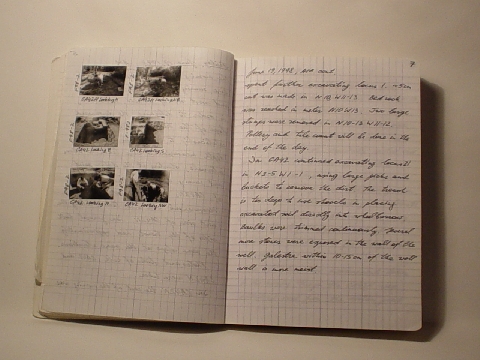 CA42 Looking N
CA42 Looking S
CA42 Looking N
CA42 Looking NW
9
June 19, 1998,
spent further excavating locus 1. ~5cm
cut was made in N10, W11-13 Bedrock
was reached in meter N10 W13 Two large
stumps were removed in N10-12 W11-12.
Pottery and tile count will be done in the
end of the day.
In CA42 continued excavating locus 21
in N3-5 W1-1, using large picks and
buckets to remove the dirt. The trench
is too deep to use shovels in placing
excavated soil directly into wheelbarrows.
Baulks were trimmed continuously. Several
more stones were exposed in the wall of the
well. within 10-15cm of the well
wall is more moist